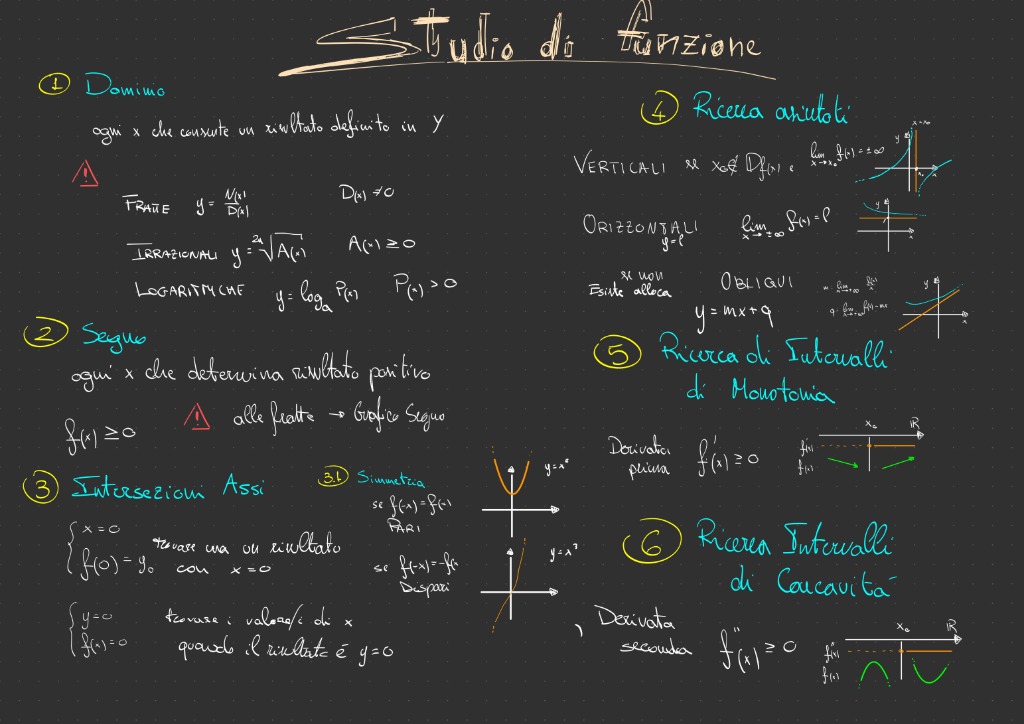 Studio di funzione
1 Dominio
ogni x che consente un risultato definito in y
FRATTE y = N(x)/D(x) D(x) ≠ 0
IRRAZIONALI y = ²ⁿ√A(x) A(x) ≥ 0
LOGARITMICHE y = logₐ P(x) P(x) > 0
2 Segno
ogni x che determina risultato positivo
f(x) ≥ 0
alle fratte → Grafico Segno
3 Intersezioni Assi
x = 0
f(0) = y₀
trovare un risultato
con x = 0
y = 0
f(x) = 0
trovare i valore/i di x
quando il risultato è y = 0
3.1 Simmetria
se f(-x) = f(x)
PARI
y = x²
se f(-x) = -f(x)
Dispari
y = x³
4 Ricerca asintoti
VERTICALI se x₀ ∉ Df(x) e lim x→x₀ f(x) = ±∞
x = x₀
y
x₀
x
ORIZZONTALI
y = l
lim x→±∞ f(x) = l
y
x
se non
Esiste allora
OBLIQUI
y = mx + q
m = lim x→∞ f(x)/x
q = lim x→∞ f(x) - mx
y
x
5 Ricerca di Intervalli
di Monotonia
Derivata
prima
f'(x) ≥ 0
x₀ ℝ
f'(x)
f(x)
6 Ricerca Intervalli
di Concavità
Derivata
seconda
f''(x) ≥ 0
x₀ ℝ
f''(x)
f(x)